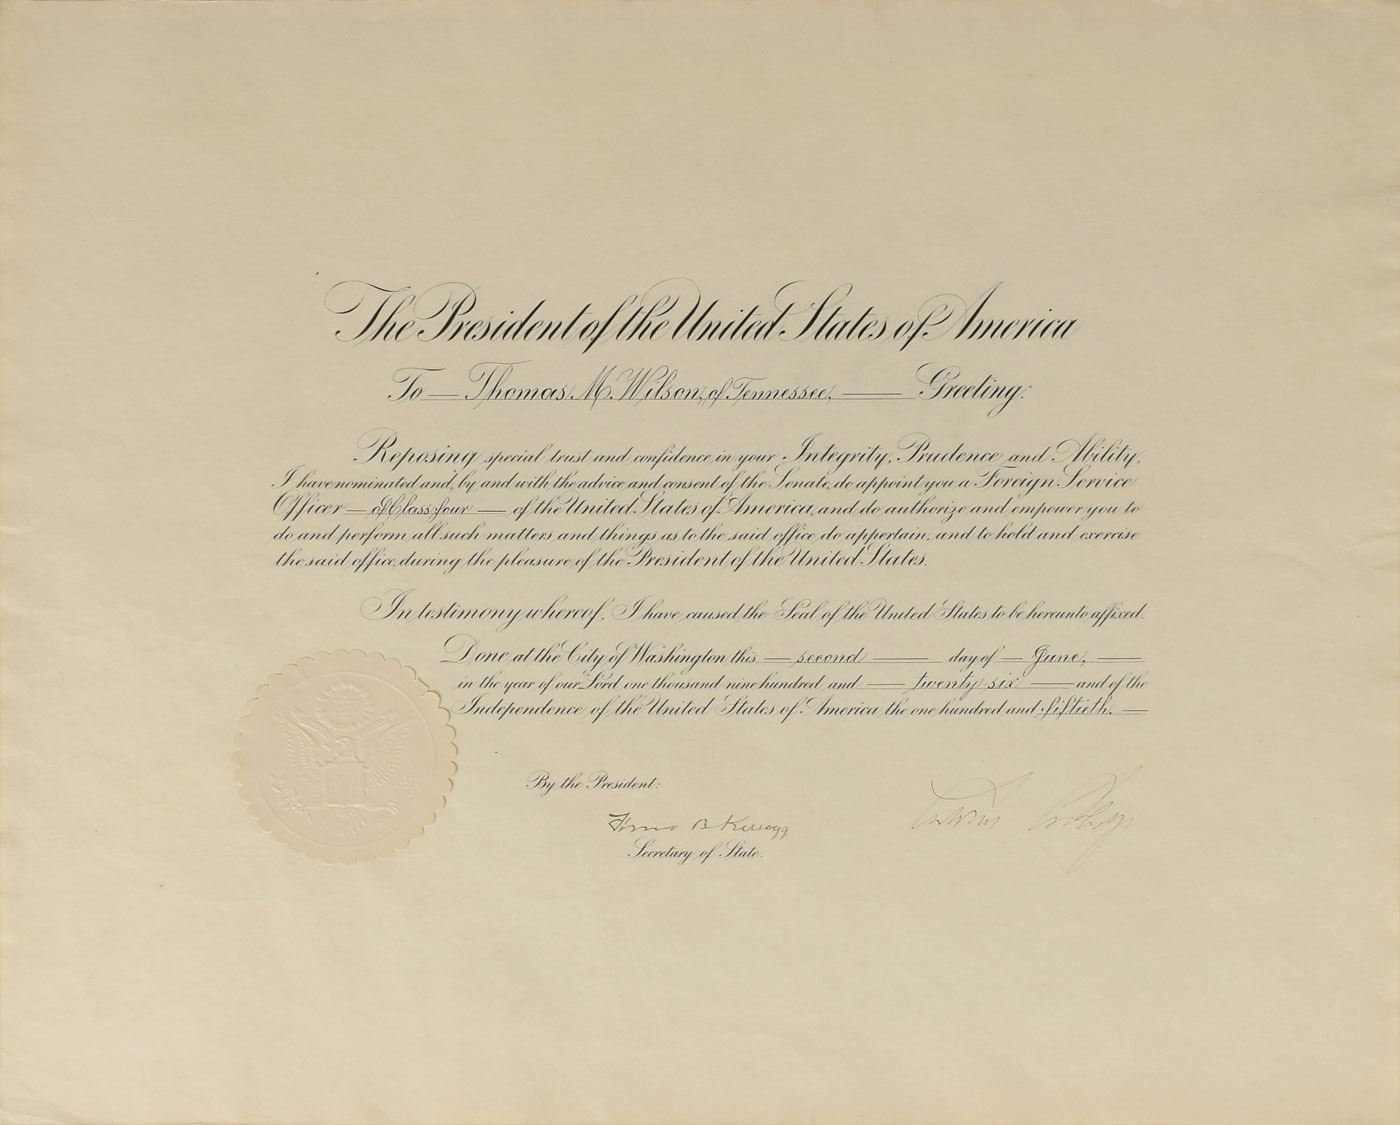 The President of the United States of America
To — Thomas M. Wilson, of Tennessee, — Greeting:
Reposing special trust and confidence in your Integrity, Prudence and Ability,
I have nominated and, by and with the advice and consent of the Senate, do appoint you a Foreign Service
Officer — of Class four — of the United States of America, and do authorize and empower you to
do and perform all such matters and things as to the said office do appertain, and to hold and exercise
the said office, during the pleasure of the President of the United States.
In testimony whereof, I have caused the Seal of the United States to be hereunto affixed.
Done at the City of Washington this — second — day of — June, —
in the year of our Lord one thousand nine hundred and — twenty-six — and of the
Independence of the United States of America the one hundred and fiftieth. —
By the President:
Frank B. Kellogg
Calvin Coolidge
Secretary of State.